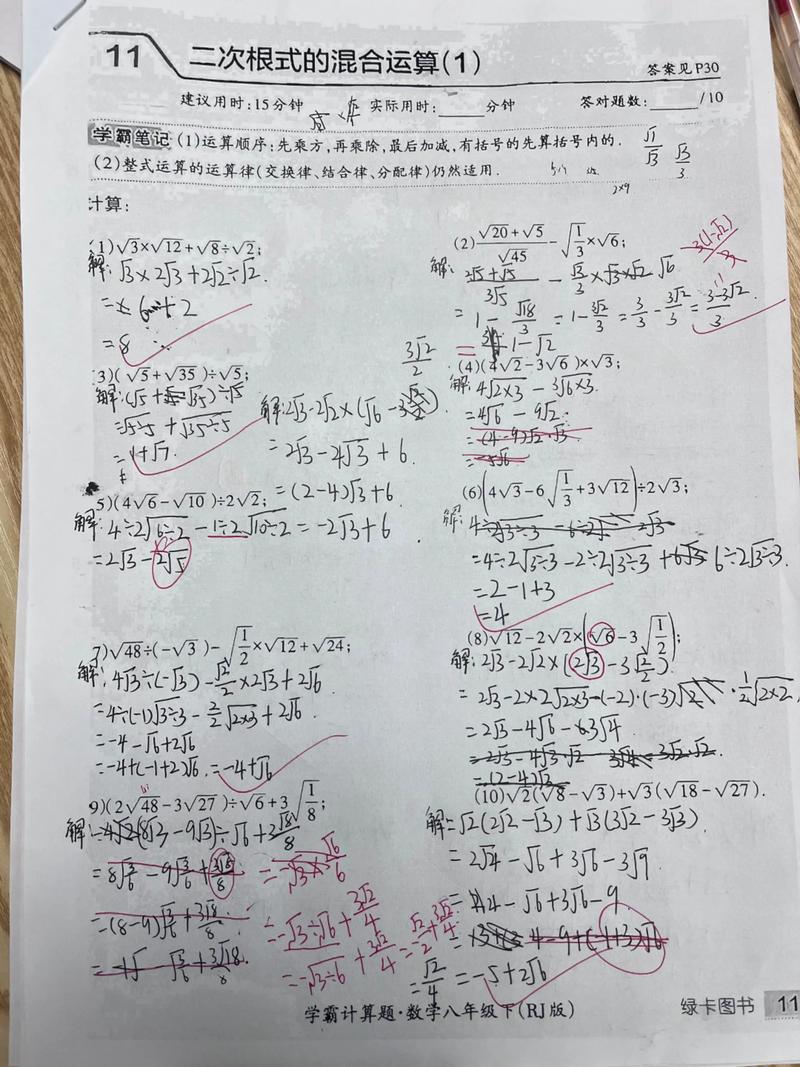 11 二次根式的混合运算(1) 答案见P30
建议用时:15分钟 实际用时:____分钟 答对题数:____/10
学霸笔记 (1)运算顺序:先乘方,再乘除,最后加减,有括号的先算括号内的.
(2)整式运算的运算律(交换律、结合律、分配律)仍然适用.
√1/√3 √3/3
2×9
计算:
(1)√3×√12+√8÷√2;
解: √3×2√3+2√2÷√2
= 6+2
=8
(2)(√20+√5)/√45-√(1/3)×√6;
解: (2√5+√5)/3√5 - √3/3×√3×√2 √6
=1-√18/3 =1-3√2/3 =3/3-3√2/3=(3-3√2)/3
3(1-√2)/3
= 1-√2
3)(√5+√35)÷√5;
解:(√5+√35)÷√5
=√5÷5+√35÷5
=1+√7
3√2/2
(4)(4√2-3√6)×√3;
解: 4√2×3-3√6×3
=4√6-9√2
=(4-9)√2·√3
=-5√6
5)(4√6-√10)÷2√2;
解: 4÷2√6÷2-1÷2√10÷2
=2√3-2√5
解:2√3-2√2×(√6-3√2/2)
=2√3-4√3+6
=(2-4)√3+6
=-2√3+6
(6)(4√3-6√(1/3)+3√12)÷2√3;
解:
=4÷2√3÷3-2÷2√3÷3+6÷2√3÷3
=2-1+3
=4
7)√48÷(-√3)-√(1/2)×√12+√24;
解: 4√3÷(-√3)-√2/2×2√3+2√6
=4÷(-1)√3÷3-2/2√2×3+2√6
=-4-√6+2√6
=-4+(-1+2)√6=-4+√6
(8)√12-2√2×(√6-3√(1/2));
解: 2√3-2√2×(2√3-3√2/2)
=2√3-2×2√2×3-(-2)·(-3)√2 ·1/2√2×2
=2√3-4√6-3√4
=(2-4)√3
9)(2√48-3√27)÷√6+3√(1/8);
解: (8√3-9√3)÷√6+3√8/8
=8√(3/6)-9√(3/6)+3√8/8
=(8-9)√(3/6)+3√8/8
= √(3/6)+3√8/8
=-√3×√6/6
=-√3÷√6+3√2/4
=-√3÷6+3√2/4=-√2/2+3√2/4
=√2/4
(10)√2(√8-√3)+√3(√18-√27).
解:=√2(2√2-√3)+√3(3√2-3√3)
=2√4-√6+3√6-3√9
=4-√6+3√6-9
= 4-9+(-1+3)√6
=-5+2√6
学霸计算题·数学八年级下(RJ版) 绿卡图书 11